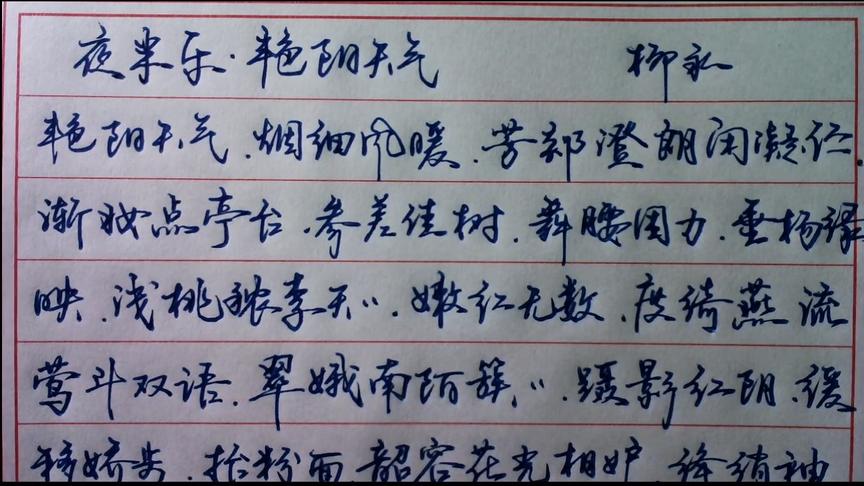 夜半乐·艳阳天气 柳永
艳阳天气.烟细风暖.芳郊澄朗闲凝伫.
渐妆点亭台.参差佳树.舞腰困力.垂杨绿
映.浅桃秾李夭〃.嫩红无数.度绮燕流
莺斗双语.翠娥南陌簇〃.蹑影红阴.缓
移娇步.抬粉面韶容花光相妒.绛绡袖